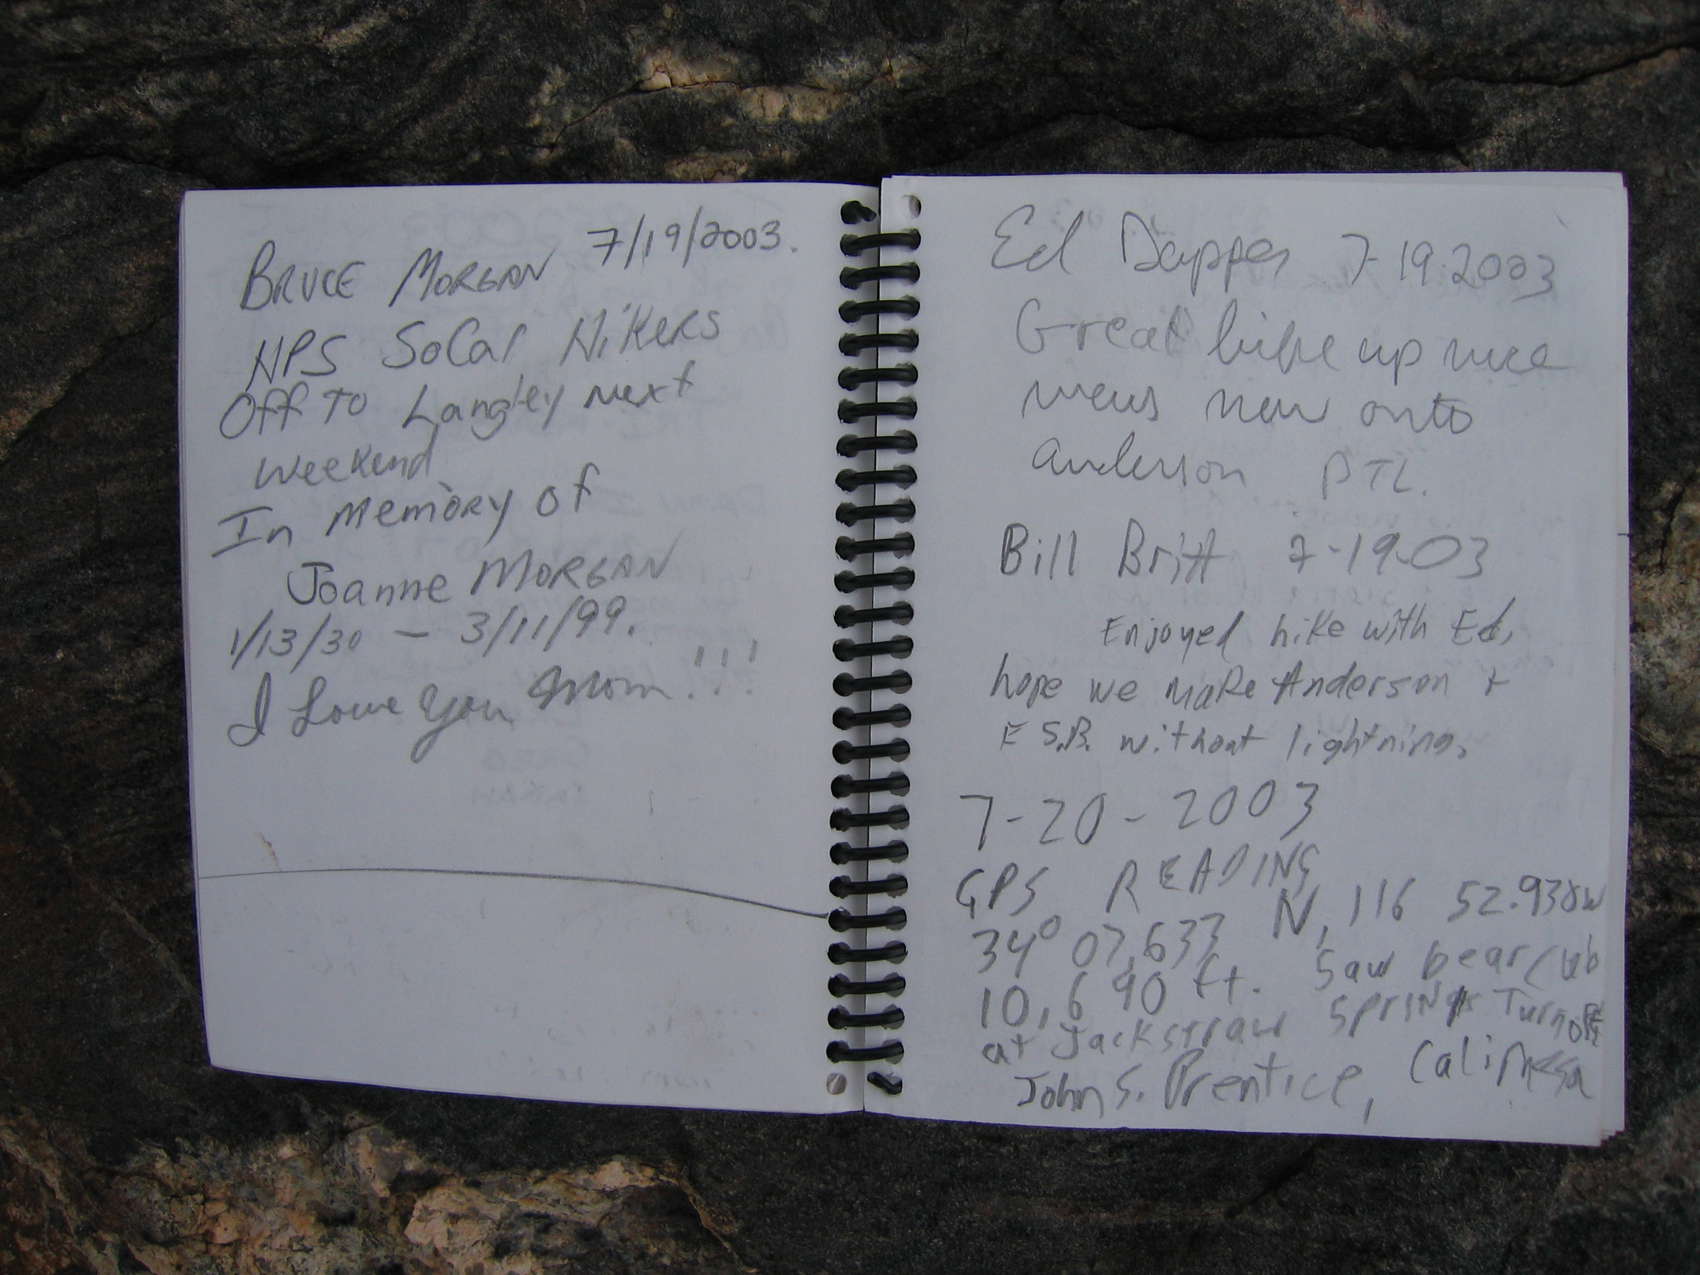 7/19/2003.
BRUCE MORGAN
HPS SoCal HiKERS
Off To Langley next
weekend
In memory of
Joanne MORGAN
1/13/30 – 3/11/99.
I Love You Mom!!!
Ed Dapper 7-19-2003
Great hike up nice
views now onto
anderson PTL.
Bill Britt 7-19-03
Enjoyed hike with Ed,
hope we make Anderson +
E S.B. without lightning.
7-20-2003
GPS READING
34° 07.633 N, 116 52.938w
10,690 ft. Saw bear cub
at Jackstraw Springs Turnoff
John S. Prentice, Calimesa